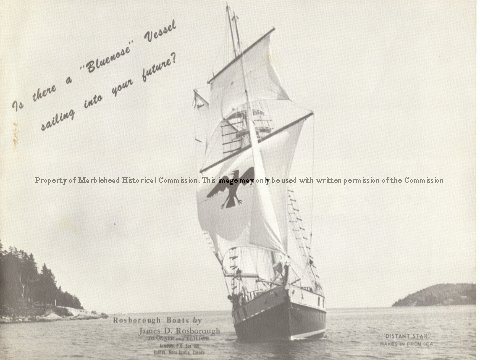 Is there a "Bluenose" Vessel
sailing into your future?
Property of Marblehead Historical Commission. This image may only be used with written permission of the Commission
Rosborough Boats by
James D. Rosborough
Halifax, Nova Scotia, Canada
DISTANT STAR